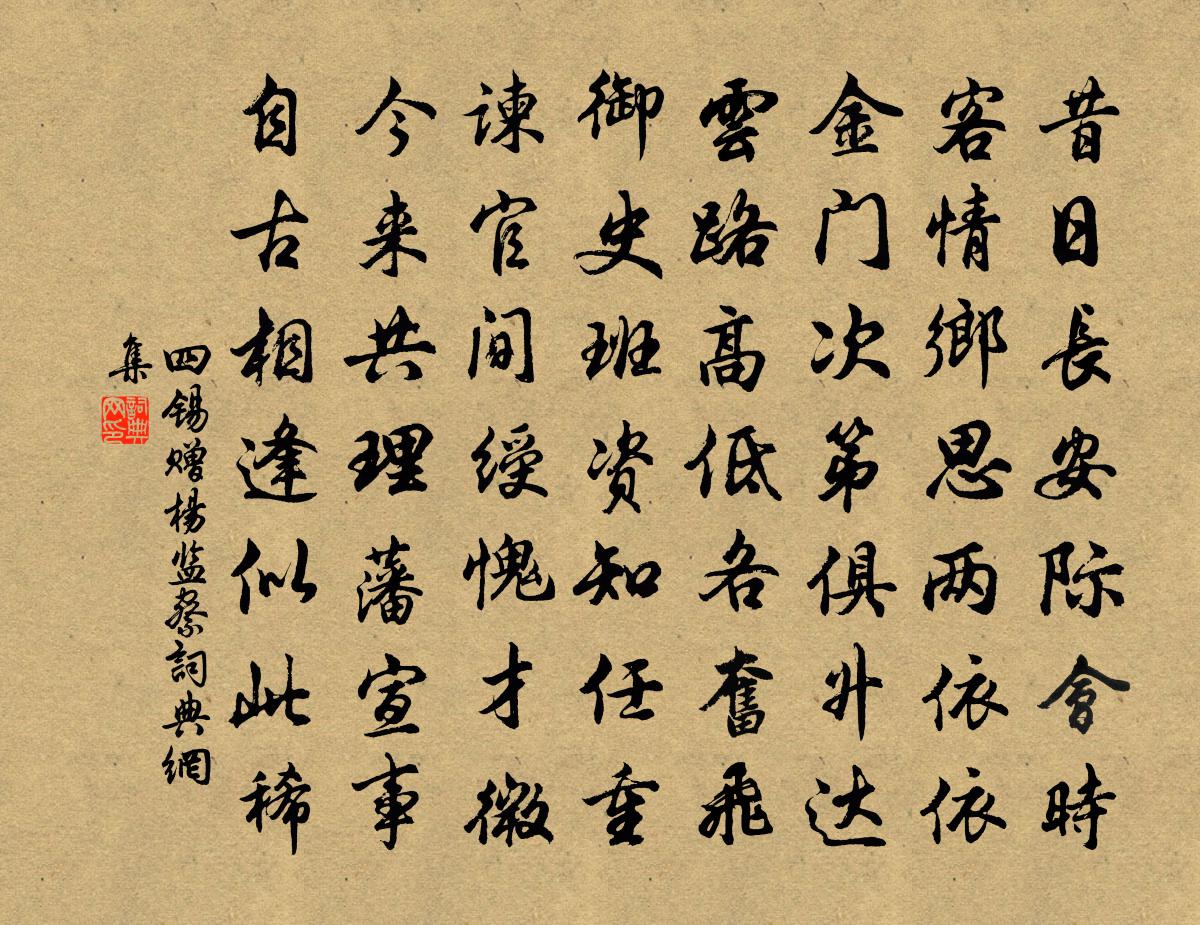 昔日長安际會時
客情鄉思两依依
金门次第俱升达
雲路高低各奮飛
御史班资知任重
谏官间绶愧才微
今来共理藩宣事
自古相逢似此稀
四锡赠楊监察詞典網
集
詞典网印